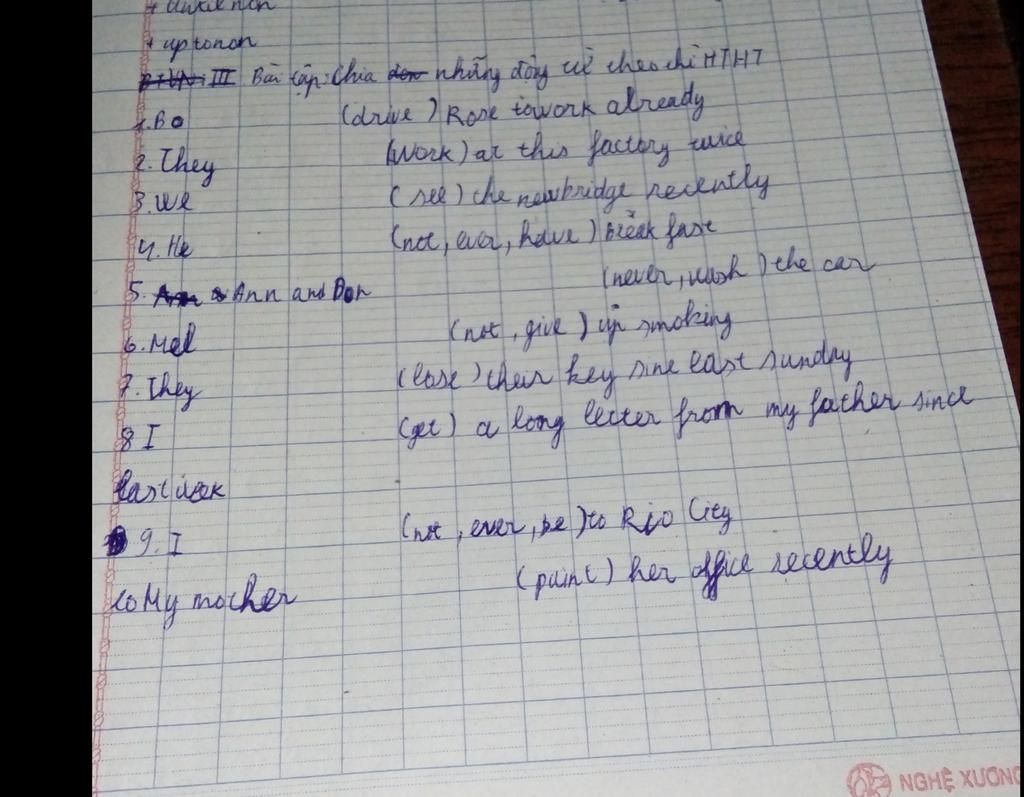 + until non
+ uptonon
III Bài tập: Chia những động từ theo thì HTHT
1. Bo (drive) Rose to work already
2. They (work) at this factory twice
3. We (see) the new bridge recently
4. He (not, ever, have) break fast
5. Ann and Don (never, wash) the car
6. Mel (not, give) up smoking
7. They (lose) their key sine last sunday
8 I (get) a long letter from my father since
last week
9. I (not, ever, be) to Rio City
10 My mother (paint) her office recently
NGHỆ XƯƠNG